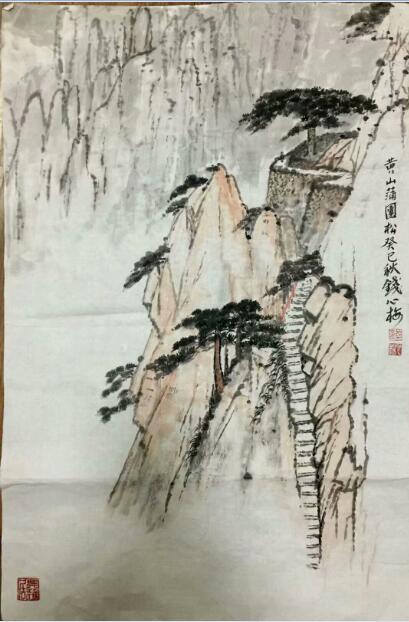 黄山蒲團松癸巳秋錢心梅